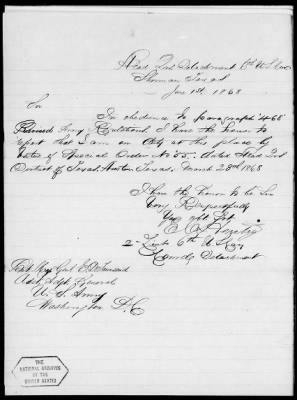 Head Qrs Detachment 6th U.S. Cav
Sherman Texas
June 1st 1868
Sir
In obedience to paragraph 468
Revised Army Regulations I have the honor to
report that I am on duty at this place by
virtue of Special Order No 55. Hdqrs
District of Texas, Austin, Texas, March 28th 1868
I have the honor to be Sir
Very Respectfully
Your obt Svt
2nd Lieut 6th U.S. Cav
Comdg Detachment
Brvt Maj Genl E. D. Townsend
Asst Adjt General
U. S. Army
Washington D. C.
THE
NATIONAL ARCHIVES
OF THE
UNITED STATES